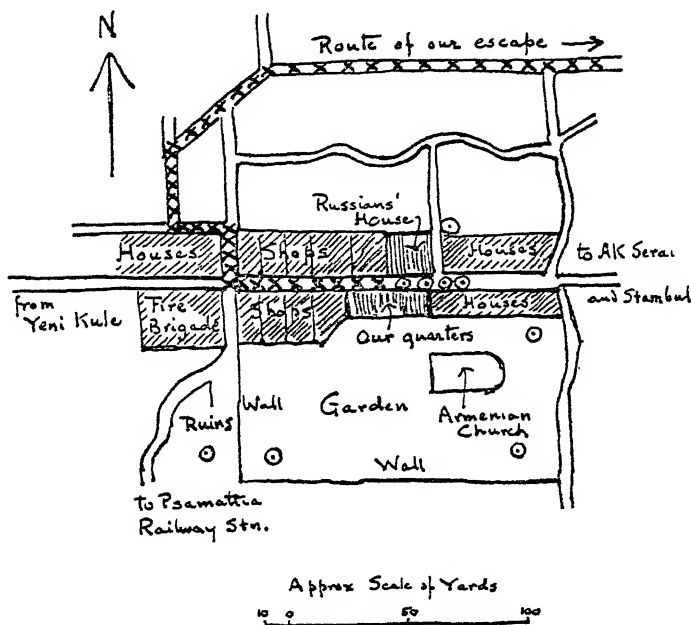 N
Route of our escape
Russians'
House
Houses
Shops
Houses
to AK Serai
from
Yeni Kule
Fire
Brigade
Shops
Houses
and Stambul
Our quarters
Ruins
Wall
Garden
Armenian
Church
Wall
to Psamattia
Railway Stn.
Approx Scale of Yards
10 0 50 100